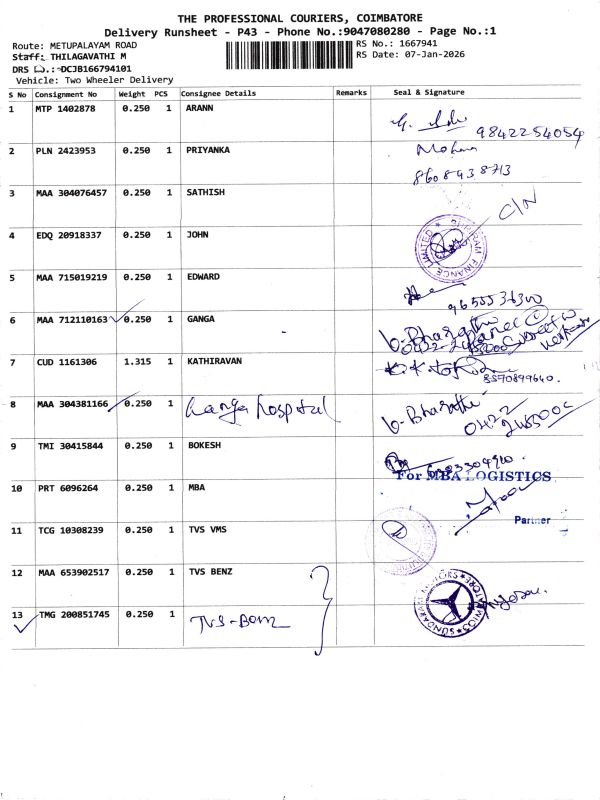 THE PROFESSIONAL COURIERS, COIMBATORE
Delivery Runsheet - P43 - Phone No.:9047080280 - Page No.:1
Route: METUPALAYAM ROAD
RS No.: 1667941
Staff: THILAGAVATHI M
RS Date: 07-Jan-2026
DRS ID.: DCJB166794101
Vehicle: Two Wheeler Delivery
S No Consignment No Weight PCS Consignee Details Remarks Seal & Signature
1 MTP 1402878 0.250 1 ARANN
9842254054
2 PLN 2423953 0.250 1 PRIYANKA Mohan
8608438713
3 MAA 304076457 0.250 1 SATHISH C/N
4 EDQ 20918337 0.250 1 JOHN
FINANCE LIMITED
5 MAA 715019219 0.250 1 EDWARD
9655536300
6 MAA 712110163 0.250 1 GANGA
7 CUD 1161306 1.315 1 KATHIRAVAN
8570899640.
8 MAA 304381166 0.250 1 Ganga hospital
0422
9 TMI 30415844 0.250 1 BOKESH
For MBA LOGISTICS
10 PRT 6096264 0.250 1 MBA
Partner
11 TCG 10308239 0.250 1 TVS VMS
12 MAA 653902517 0.250 1 TVS BENZ
SUNDARAM MOTORS
13 TMG 200851745 0.250 1 TVS-Benz